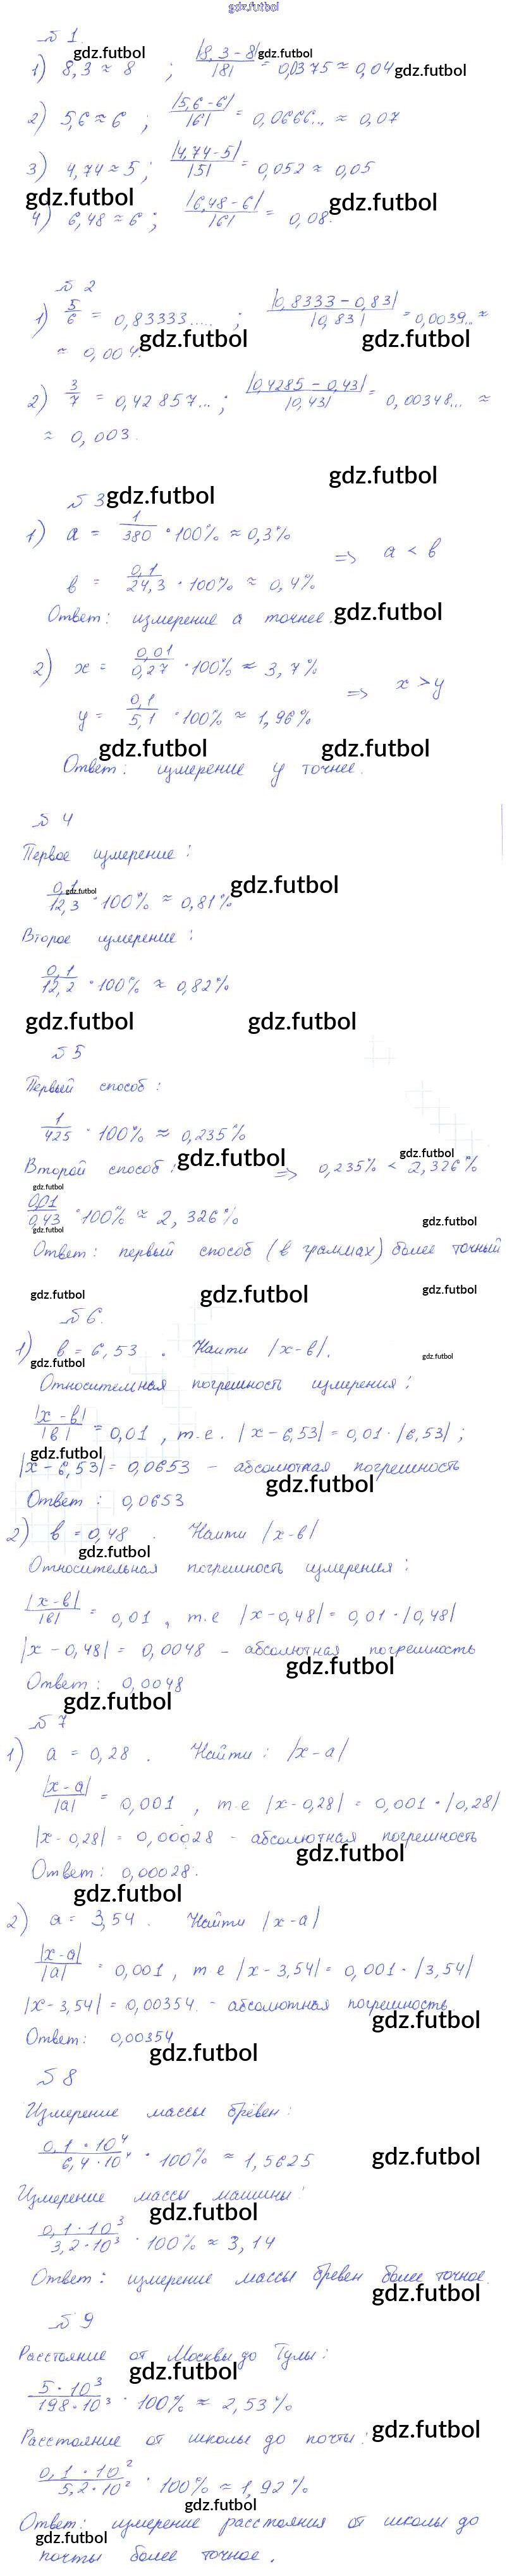 gdz.futbol
№ 1.
gdz.futbol
1) 8,3 ≈ 8 ; |8,3 – 8| / |8| = 0,0375 ≈ 0,04
gdz.futbol
gdz.futbol
2) 5,6 ≈ 6 ; |5,6 – 6| / |6| = 0,0666... ≈ 0,07
3) 4,74 ≈ 5 ; |4,74 – 5| / |5| = 0,052 ≈ 0,05
gdz.futbol
gdz.futbol
4) 6,48 ≈ 6 ; |6,48 – 6| / |6| = 0,08.
№ 2
1) 5/6 = 0,83333..... ; |0,8333 – 0,83| / |0,83| = 0,0039... ≈
gdz.futbol
gdz.futbol
≈ 0,004.
2) 3/7 = 0,42857... ; |0,4285 – 0,43| / |0,43| = 0,00348... ≈
≈ 0,003.
gdz.futbol
№ 3
gdz.futbol
1) a = 1/380 · 100% ≈ 0,3%
⇒ a < b
b = 0,1/24,3 · 100% ≈ 0,4%
Ответ: измерение a точнее.
gdz.futbol
2) x = 0,01/0,27 · 100% ≈ 3,7%
⇒ x > y
y = 0,1/5,1 · 100% ≈ 1,96%
gdz.futbol
gdz.futbol
Ответ: измерение y точнее.
№ 4
Первое измерение:
0,1/12,3 · 100% ≈ 0,81%
gdz.futbol
gdz.futbol
Второе измерение:
0,1/12,2 · 100% ≈ 0,82%
gdz.futbol
gdz.futbol
№ 5
Первый способ:
1/425 · 100% ≈ 0,235%
Второй способ:
gdz.futbol
⇒ 0,235% < 2,326%
gdz.futbol
gdz.futbol
0,01/0,43 · 100% ≈ 2,326%
gdz.futbol
gdz.futbol
Ответ: первый способ (в граммах) более точный
gdz.futbol
gdz.futbol
gdz.futbol
№ 6.
1) b = 6,53 . Найти |x – b|.
gdz.futbol
gdz.futbol
Относительная погрешность измерения:
|x – b| / |b| = 0,01 , т.е. |x – 6,53| = 0,01 · |6,53| ;
gdz.futbol
|x – 6,53| = 0,0653 – абсолютная погрешность
gdz.futbol
Ответ : 0,0653
2) b = 0,48 . Найти |x – b|
gdz.futbol
Относительная погрешность измерения:
|x – b| / |b| = 0,01 , т.е |x – 0,48| = 0,01 · |0,48|
|x – 0,48| = 0,0048 – абсолютная погрешность
gdz.futbol
Ответ : 0,0048
gdz.futbol
№ 7
1) a = 0,28 . Найти : |x – a|
|x – a| / |a| = 0,001 , т.е |x – 0,28| = 0,001 · |0,28|
|x – 0,28| = 0,00028 – абсолютная погрешность
gdz.futbol
Ответ: 0,00028.
gdz.futbol
2) a = 3,54 . Найти |x – a|
|x – a| / |a| = 0,001 , т е |x – 3,54| = 0,001 · |3,54|
|x – 3,54| = 0,00354. – абсолютная погрешность.
gdz.futbol
Ответ: 0,00354
gdz.futbol
№ 8
Измерение массы брёвен:
0,1 · 10⁴ / 6,4 · 10⁴ · 100% ≈ 1,5625
gdz.futbol
Измерение массы машины:
gdz.futbol
0,1 · 10³ / 3,2 · 10³ · 100% ≈ 3,14
Ответ: измерение массы бревен более точное.
gdz.futbol
№ 9
Расстояние от Москвы до Тулы:
gdz.futbol
5 · 10³ / 198 · 10³ · 100% ≈ 2,53%
Расстояние от школы до почты:
gdz.futbol
0,1 · 10² / 5,2 · 10² · 100% ≈ 1,92%
gdz.futbol
Ответ: измерение расстояния от школы до
gdz.futbol
почты более точное.